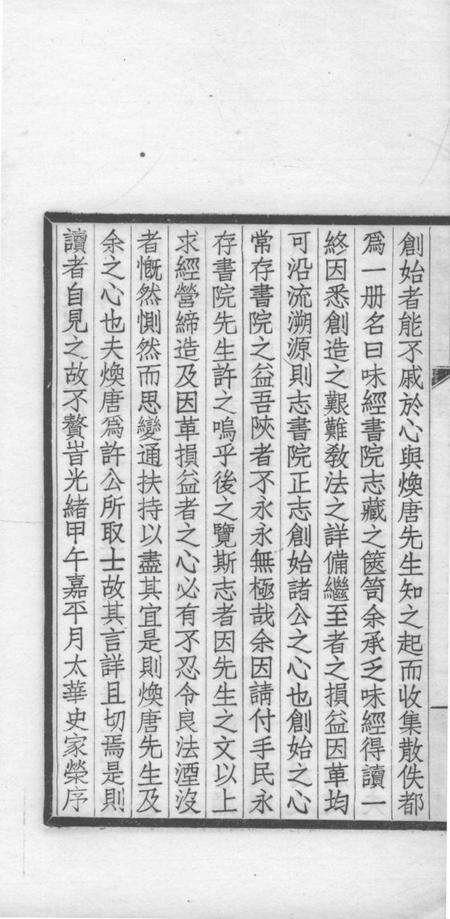 創始者能不戚於心與煥唐先生知之起而收集散佚都
爲一册名曰味經書院志藏之篋笥余承乏味經得讀一
終因悉創造之艱難敎法之詳備繼至者之損益因革均
可沿流溯源則志書院正志創始諸公之心也創始之心
常存書院之益吾陜者不永永無極哉余因請付手民永
存書院先生許之嗚乎後之覽斯志者因先生之文以上
求經營締造及因革損益者之心必有不忍令良法湮没
者慨然惻然而思變通扶持以盡其宜是則煥唐先生及
余之心也夫煥唐爲許公所取士故其言詳且切焉是則
讀者自見之故不贅旹光緒甲午嘉平月太華史家榮序